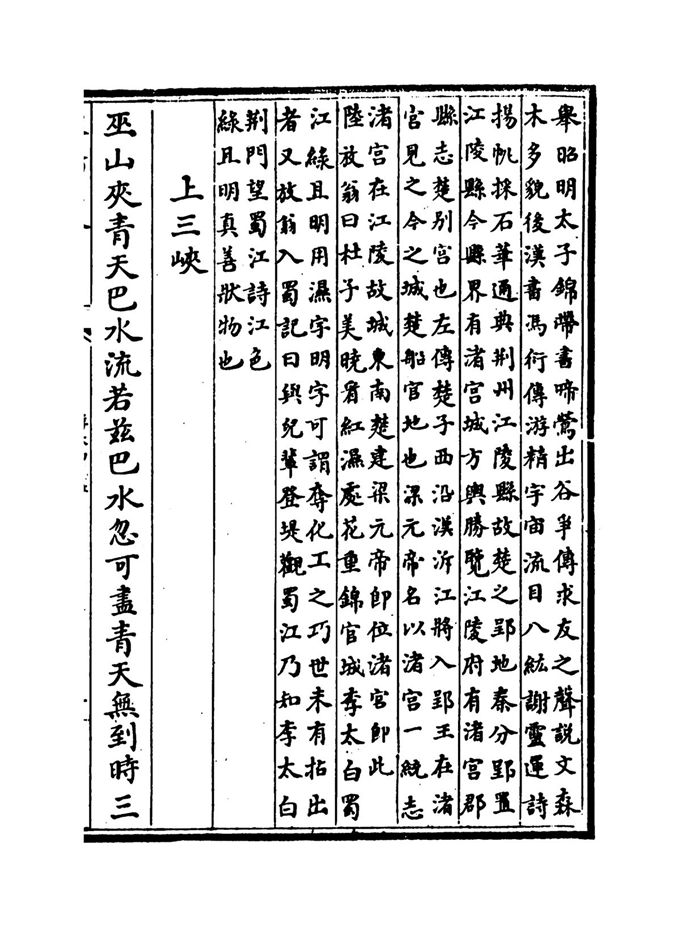 舉昭明太子錦帶書啼鶯出谷爭傳求友之聲説文森
木多貌後漢書馮衍傳游精宇宙流目八紘謝靈運詩
揚帆採石華通典荆州江陵縣故楚之郢地秦分郢置
江陵縣今縣界有渚宮城方輿勝覽江陵府有渚宮郡
縣志楚别宮也左傳楚子西沿漢泝江將入郢王在渚
宮見之今之城楚船官地也梁元帝名以渚宮一統志
渚宮在江陵故城東南楚建梁元帝即位渚宮即此
陸放翁曰杜子美曉看紅濕處花重錦官城李太白蜀
江綠且明用濕字明字可謂奪化工之巧世未有拈出
者又放翁入蜀記曰與兒輩登堤觀蜀江乃知李太白
荆門望蜀江詩江色
綠且明真善狀物也
上三峽
巫山夾青天巴水流若兹巴水忽可盡青天無到時三